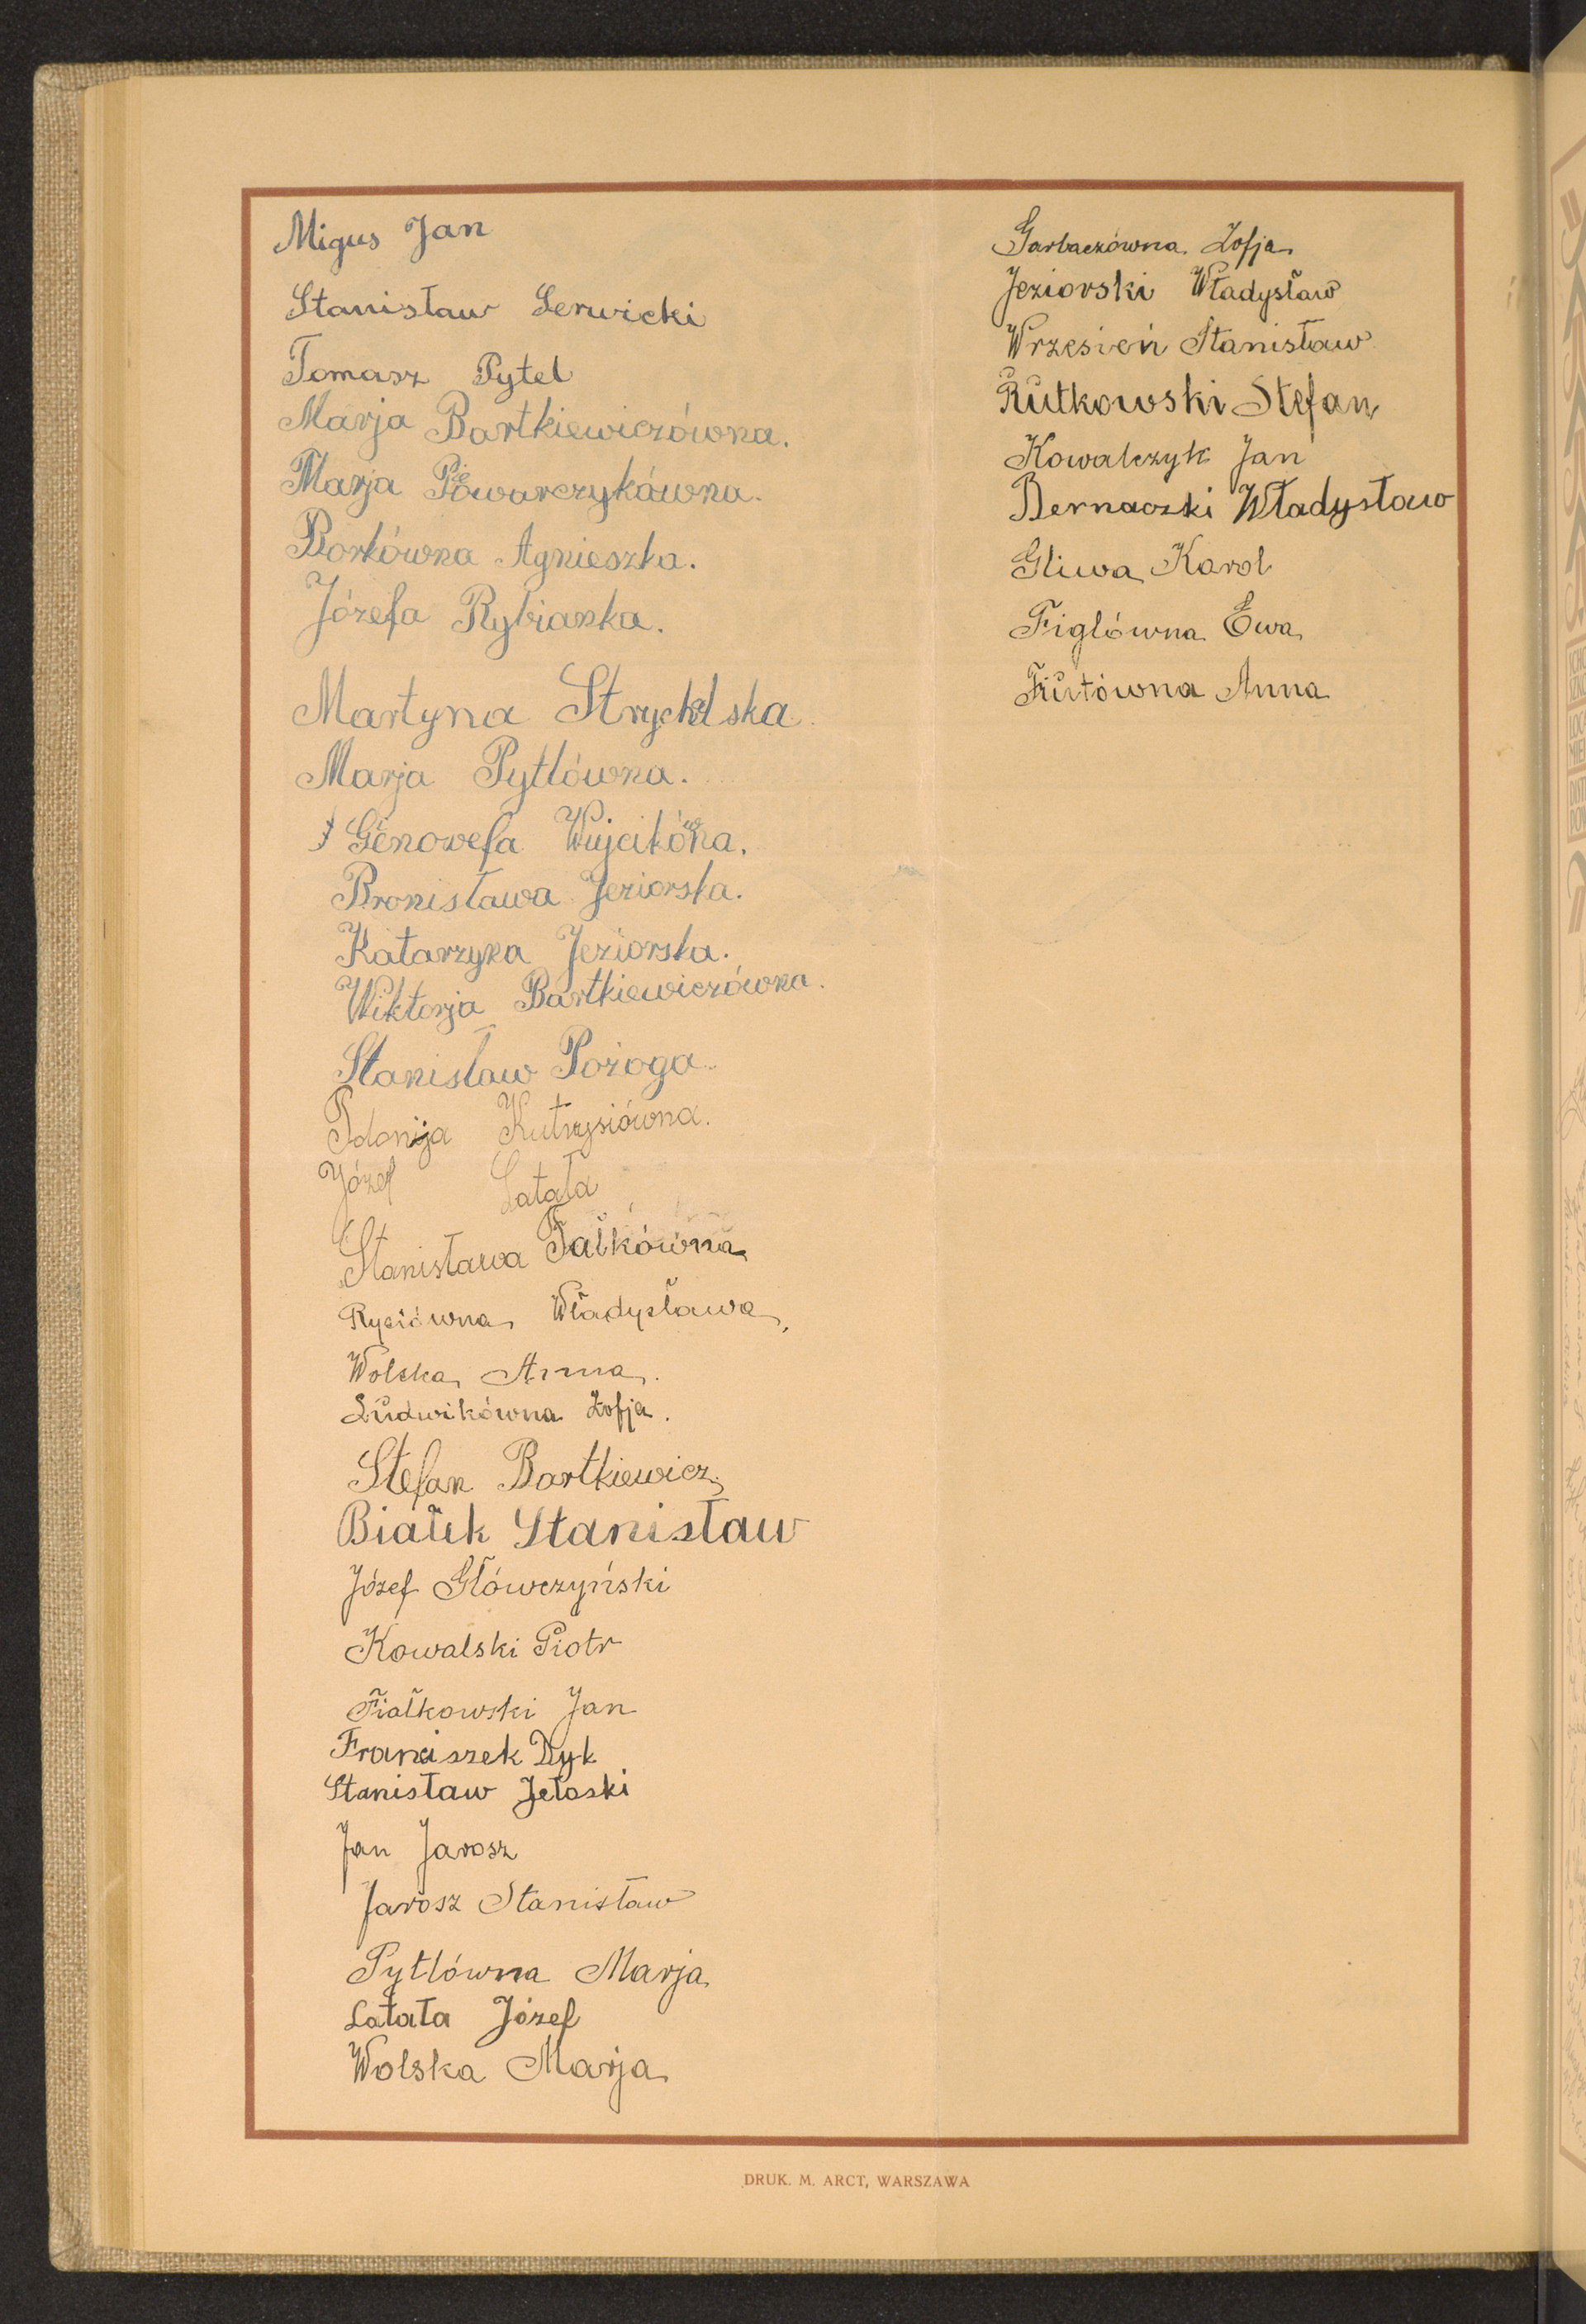 Migus Jan
Stanisław Serwicki
Tomasz Pytel
Marja Bartkiewiczówna.
Marja Piwowarczykówna.
Borkówna Agnieszka.
Józefa Rybianka.
Martyna
Marja Pytlówna.
Genowefa Wujcikówna.
Bronisława Jeziorska.
Katarzyna Jeziorska.
Wiktorja Bartkiewiczówna.
Stanisław Pożoga.
Kutrysiówna.
Józef Latała
Stanisława Fałkówna
Rysiówna Władysława,
Wolska Anna.
Ludwikówna Zofja.
Stefan Bartkiewicz,
Białek Stanisław
Józef Główczyński
Kowalski Piotr
Fiałkowski Jan
Franciszek Dyk
Stanisław Jełoski
Jan Jarosz
Jarosz Stanisław
Pytlówna Marja
Latała Józef
Wolska Marja
Garbaczówna Zofja
Jeziorski Władysław
Wrzesień Stanisław
Rutkowski Stefan
Kowalczyk Jan
Bernaczki Władysław
Gliwa Karol
Figlówna Ewa
Furtówna Anna
DRUK. M. ARCT, WARSZAWA